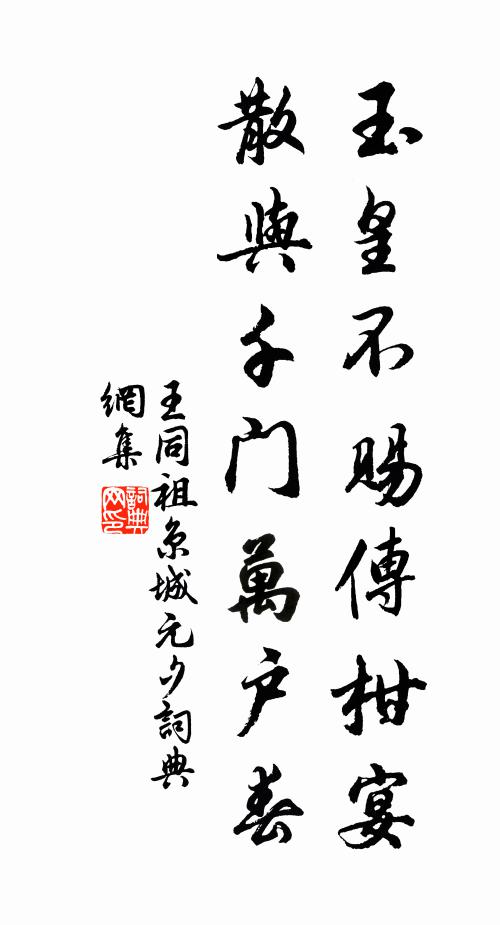 玉皇不賜傳柑宴
散與千門萬户春
王同祖京城元夕詞典
網集
詞典
网印